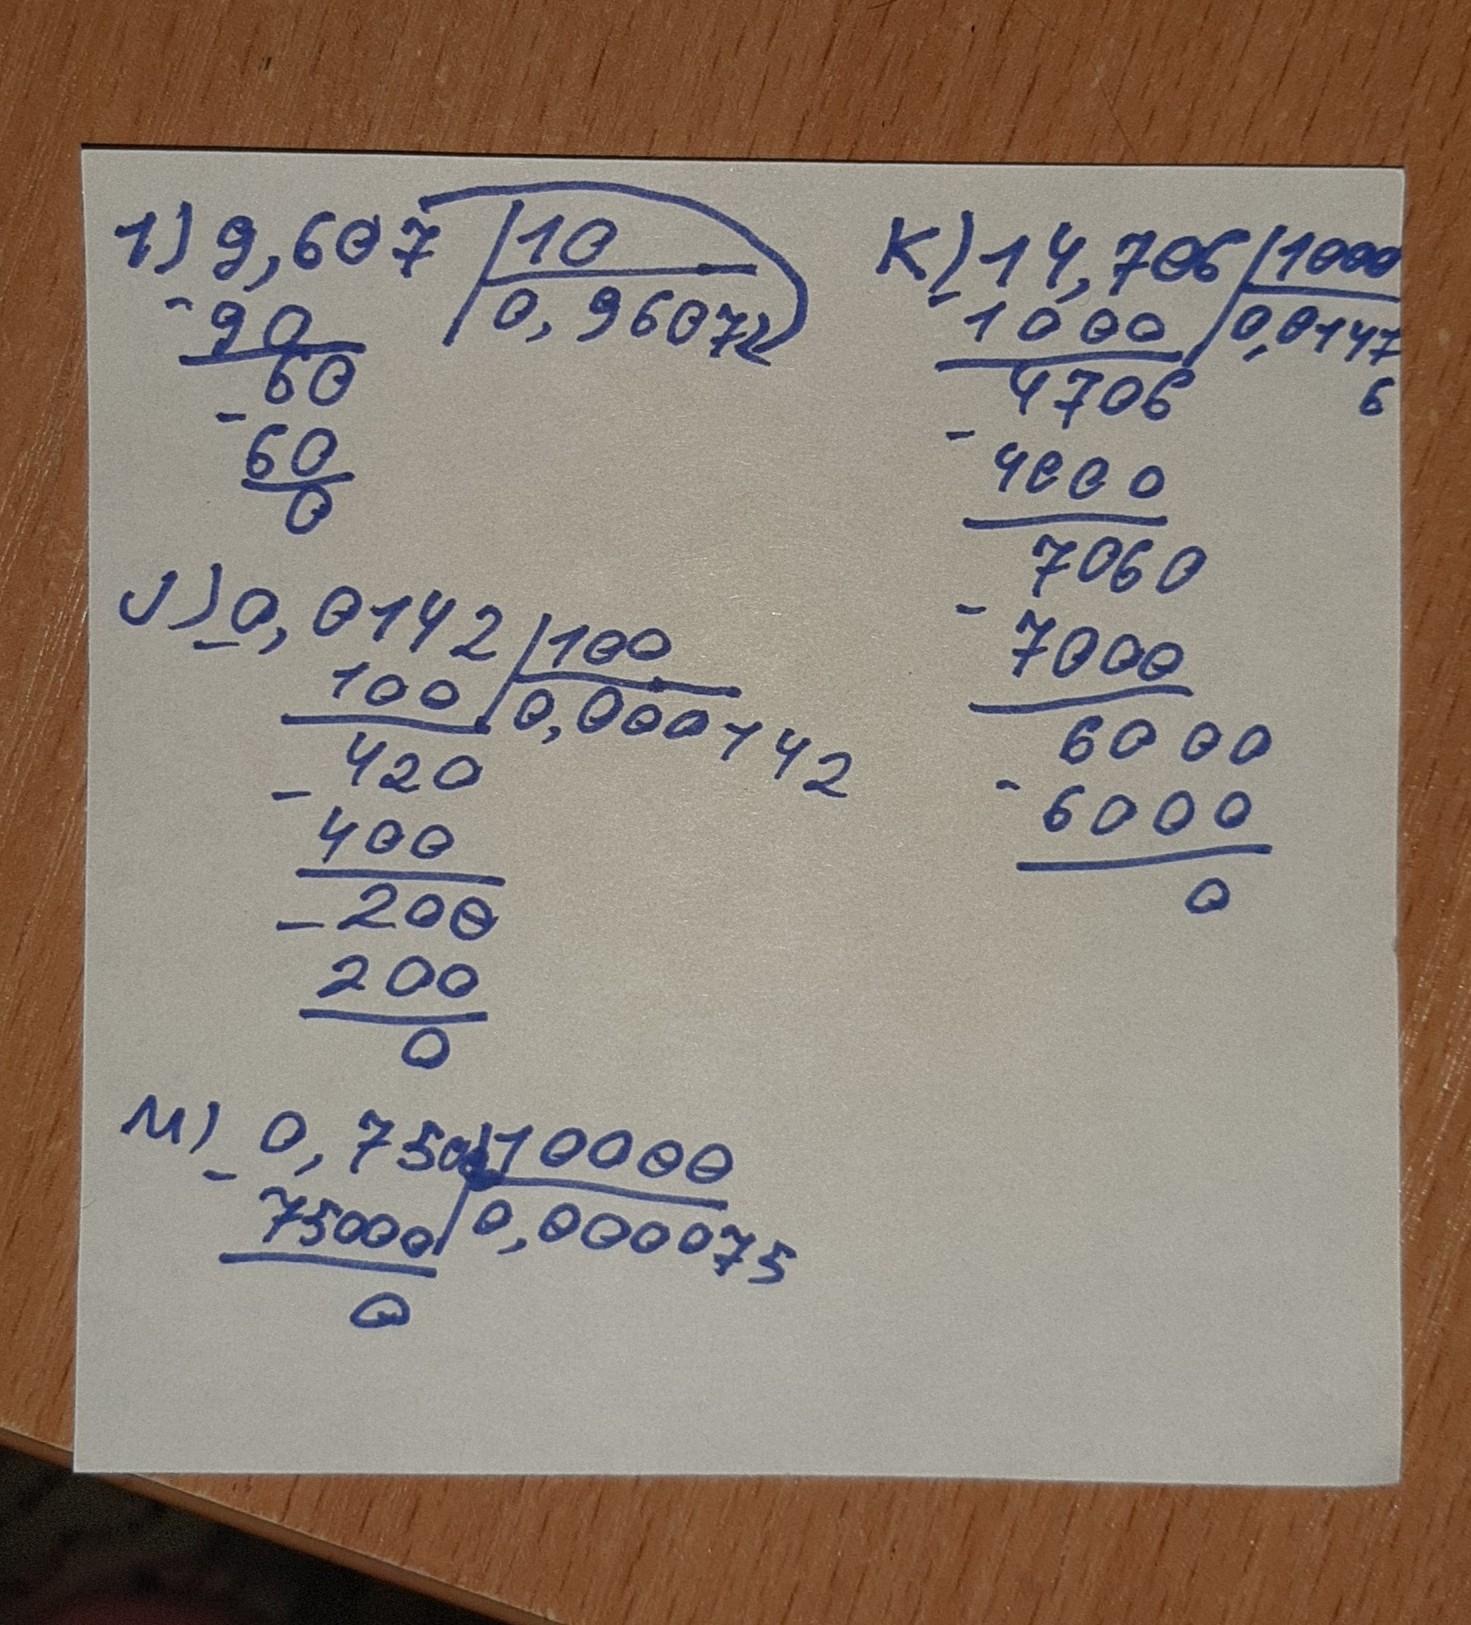 1) 9,607 | 10
- 90 | 0,9607
60
- 60
0
J) 0,0142 | 100
- 100 | 0,000142
420
- 400
- 200
200
0
M) 0,750 | 10000
- 75000 | 0,000075
0
K) 14,706 | 1000
- 1000 | 0,0147
4706 6
- 4000
7060
- 7000
6000
- 6000
0